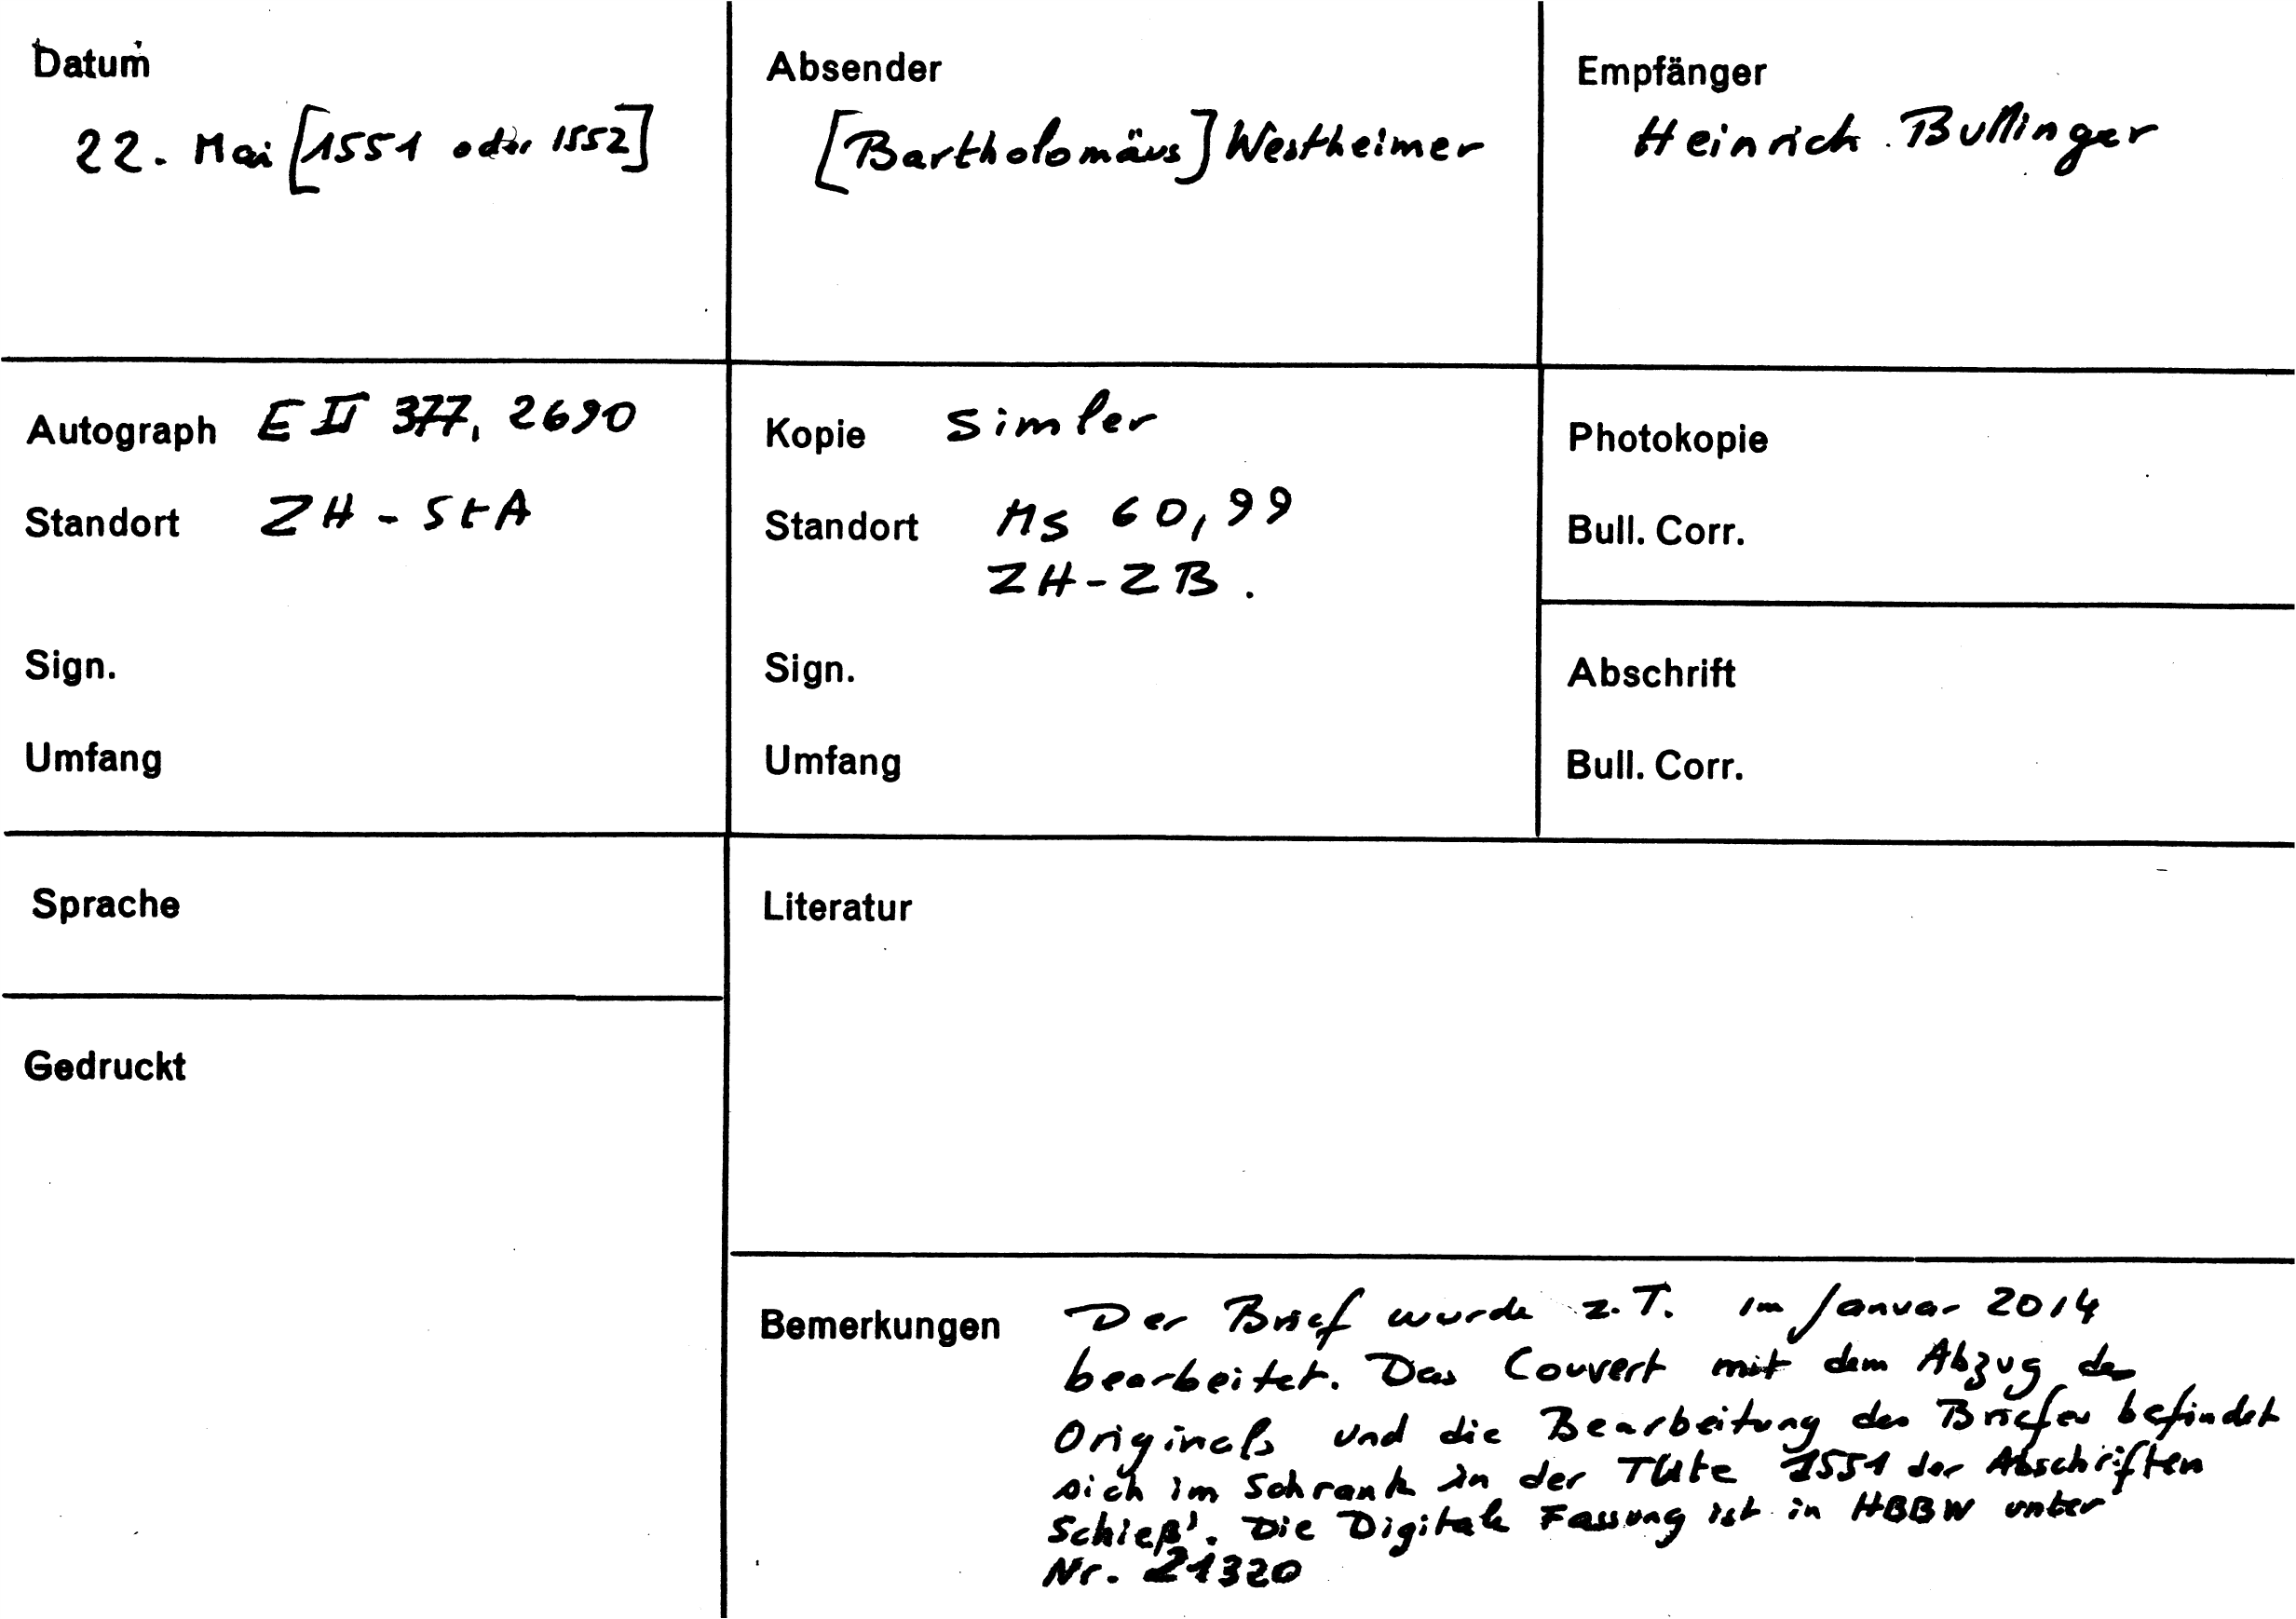 Datum
22. Mai [1551 oder 1552]
Absender
[Bartholomäus] Westheimer
Empfänger
Heinrich Bullinger
Autograph E II 377, 2690
Standort ZH - StA
Sign.
Umfang
Kopie Simler
Standort Ms 60, 99
ZH - ZB.
Sign.
Umfang
Photokopie
Bull. Corr.
Abschrift
Bull. Corr.
Sprache
Literatur
Gedruckt
Bemerkungen Der Brief wurde z. T. im Januar 2014
bearbeitet. Das Couvert mit dem Abzug des
Originals und die Bearbeitung des Briefes befindet
sich im Schrank in der Tüte 1551 der Abschriften
Schieß'. Die Digitale Fassung ist in HBBW unter
Nr. 21320